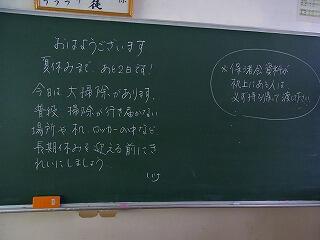 おはようございます
夏休みまで、あと2日です!
今日は大掃除があります。
普段掃除が行き届かない
場所や机、ロッカーの中など
長期休みを迎える前にき
れいにしましょう
※保護者会資料が
机上にある人は
必ず持ち帰って渡して下さい